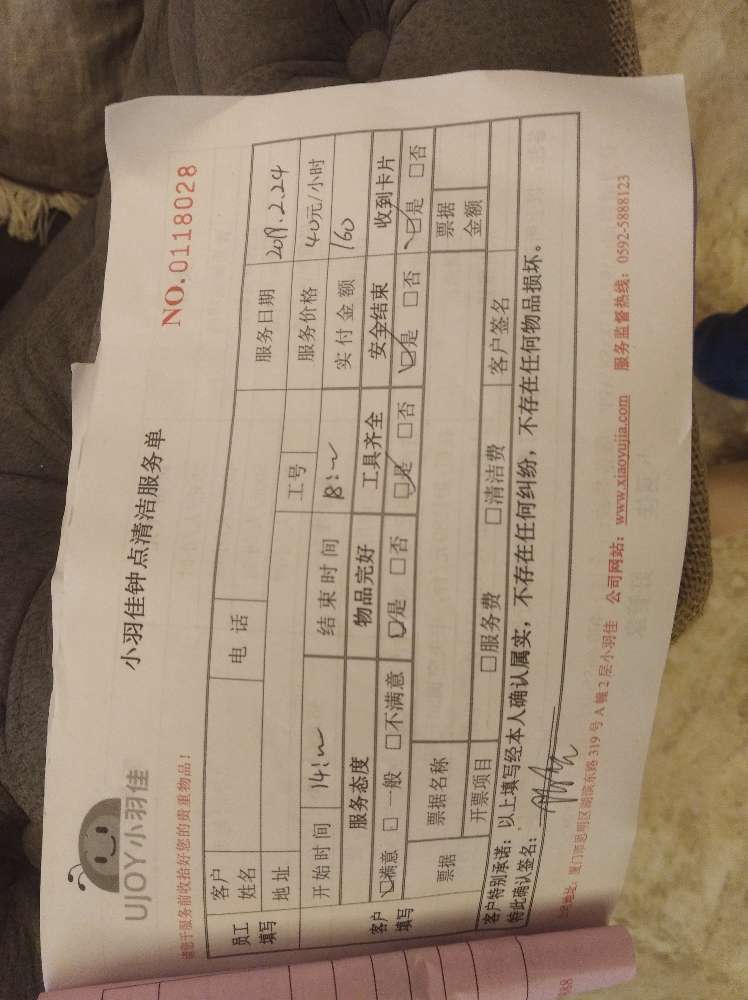 UJOY小羽佳
小羽佳钟点清洁服务单
NO.0118028
请您于服务前收拾好您的贵重物品！
员工填写
客户姓名
电 话
服务日期
2019.2.24
地 址
工号
服务价格
40元/小时
开始时间
14:
结束时间
18:
实付金额
160
客户填写
服务态度
物品完好
工具齐全
安全结束
收到卡片
☑满意 □一般 □不满意
☑是 □否
☑是 □否
☑是 □否
☑是 □否
票据
票据名称
票据金额
开票项目
□服务费 □清洁费
客户签名
客户特别承诺：以上填写经本人确认属实，不存在任何纠纷，不存在任何物品损坏。
特此确认签名：
地址：厦门市思明区湖滨东路 319 号 A 幢 2 层小羽佳 公司网站：www.xiaoyujia.com 服务监督热线：0592-5888123